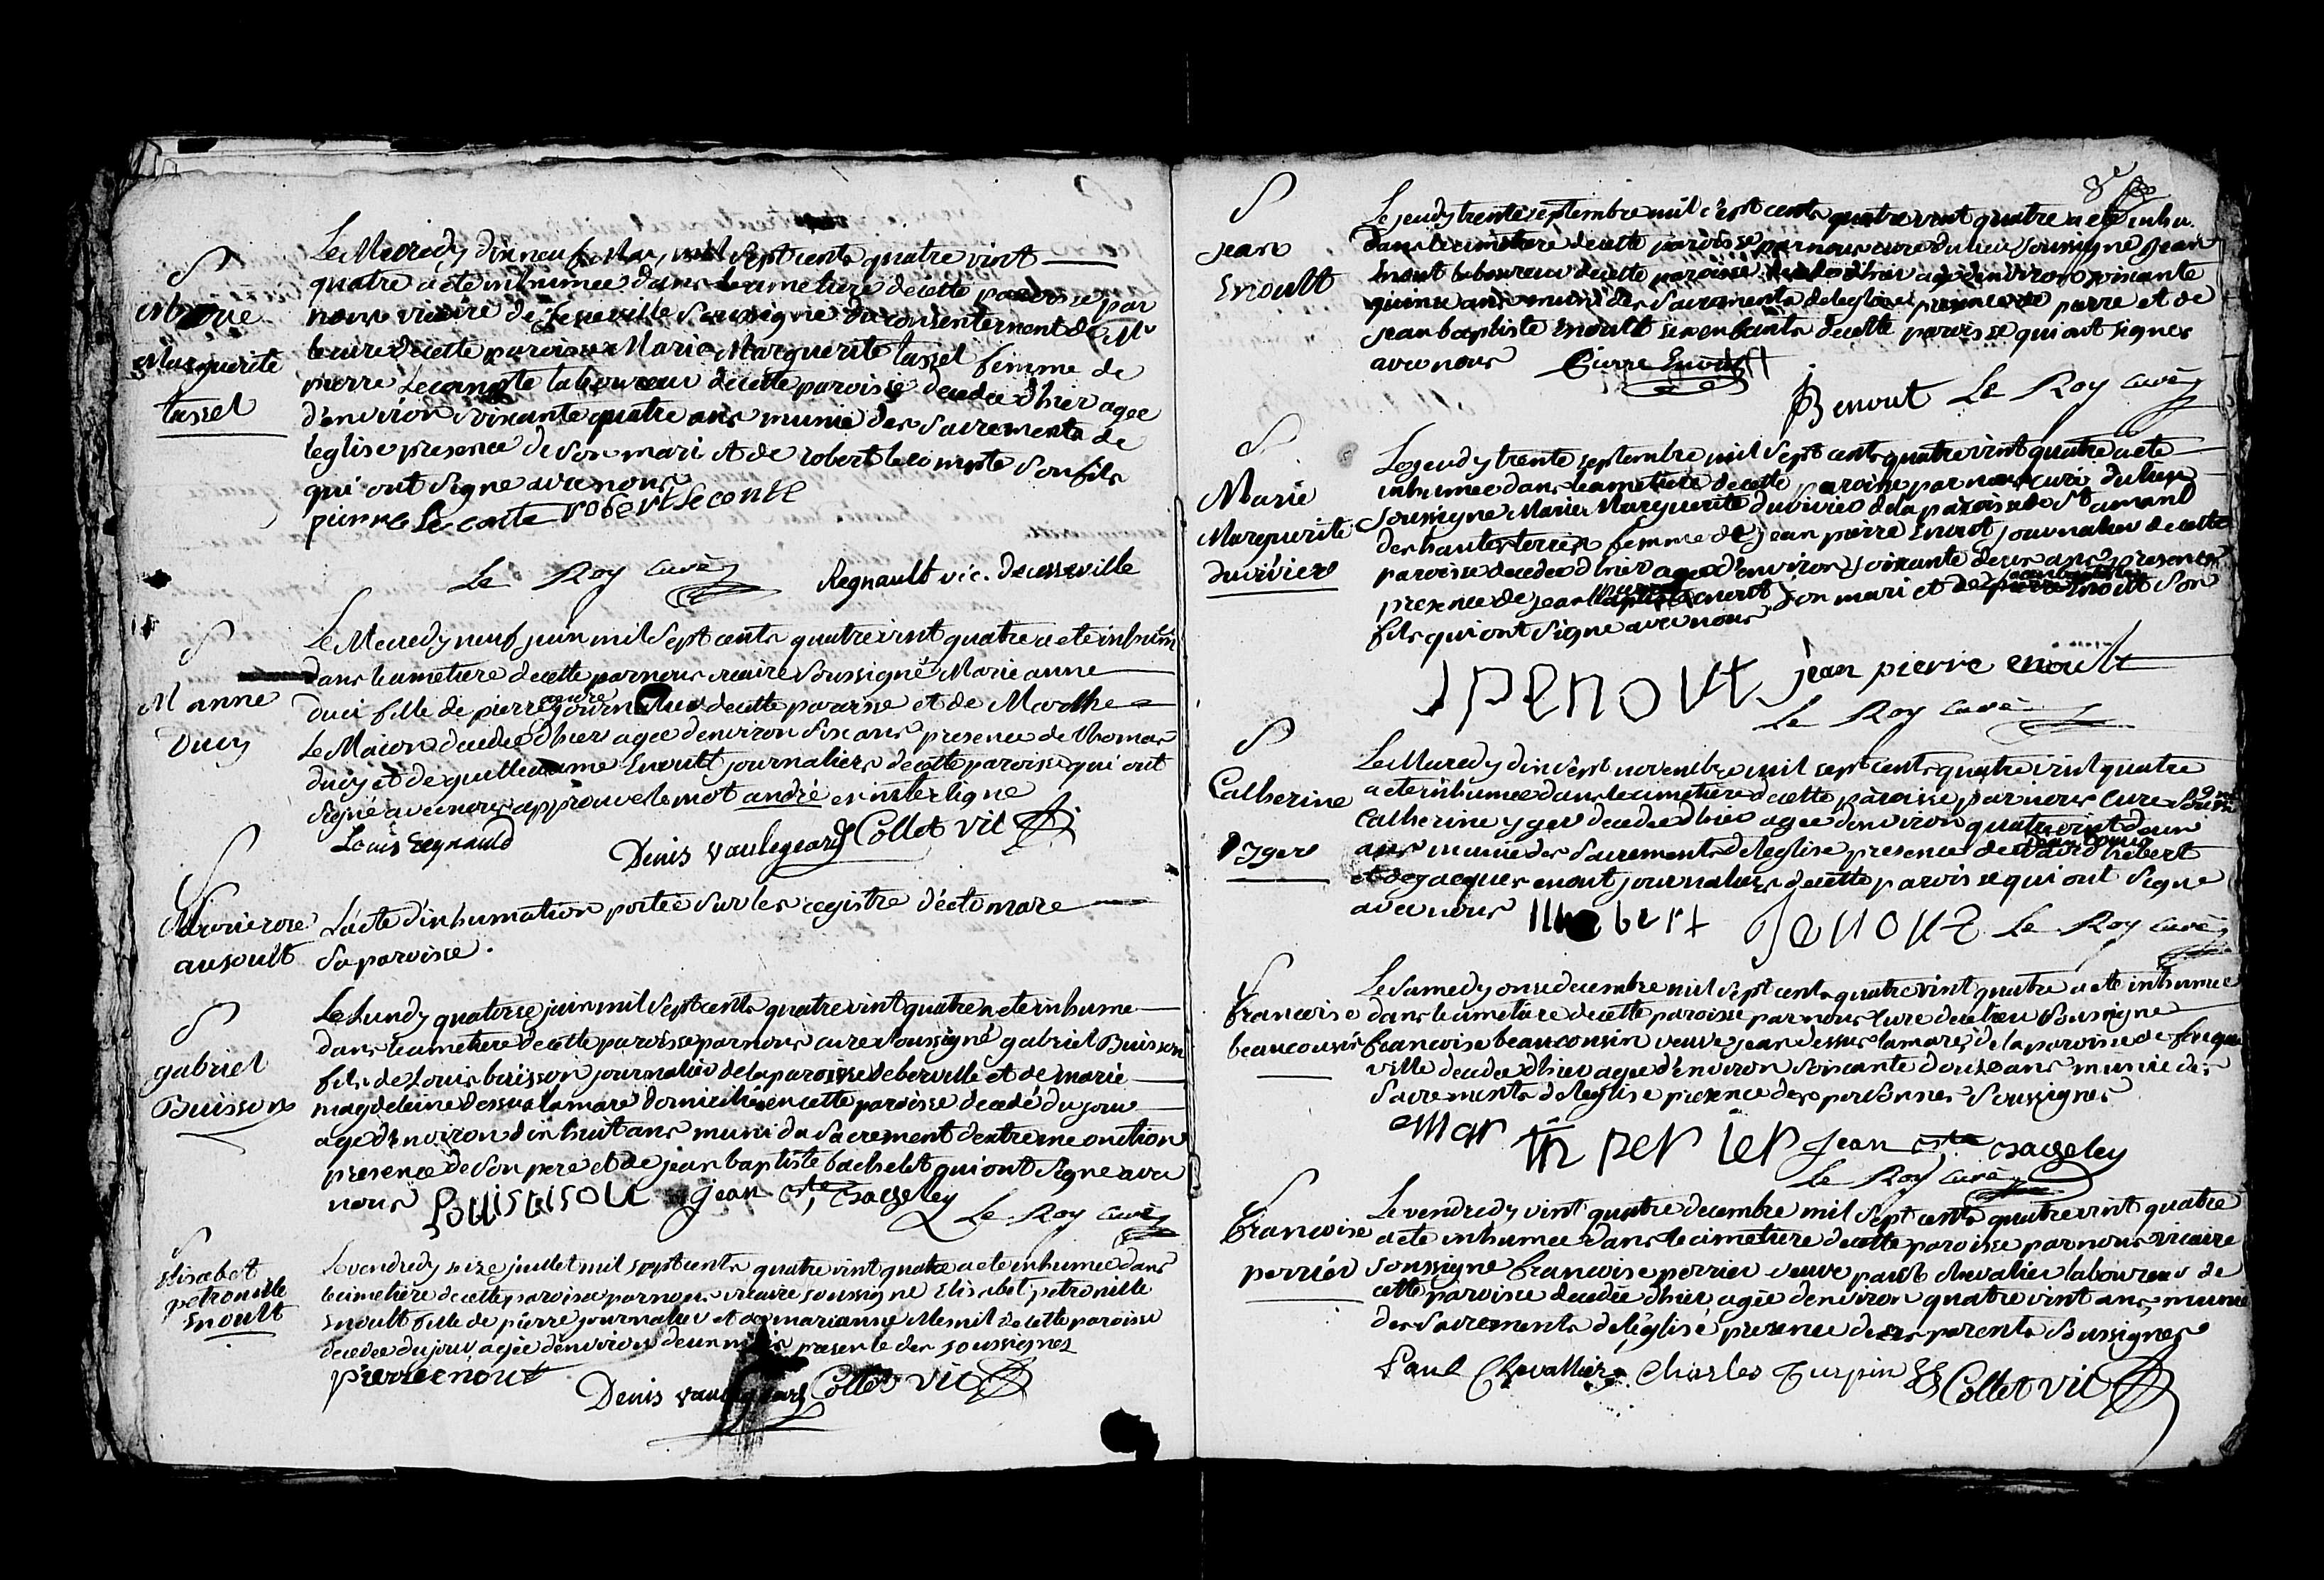 S
Marie
Marguerite
tassel
Le Mecredy dixneuf may mil sept cents quatre vint
quatre a ete inhumee dans le cimetiere de cette paroisse par
nous vicaire de soussigne du consentement de Mr
le cure de cette paroisse Marie Marguerite tassel femme de
pierre Lecompte laboureur de cette paroisse decedee d'hier agee
d'environ soixante quatre ans munie des sacrements de
leglise presence de son mari et de robert lecompte son fils
qui ont signe avec nous
pierre Le conte robert le conte
Le Roy curé Regnault vic. decusseville
S
M anne
Ducy
Le Mecredy neuf juin mil sept cents quatre vint quatre a ete inhum
dans le cimetiere de cette par nous vicaire soussigné Marie anne
duci fille de pierre andre journalier de cette paroisse et de Marthe
Le Maion decedee d'hier agee d'environ six ans presence de thomas
ducy et de guilleaume Enoult journaliers de cette paroisse qui ont
signé avec nous approuve le mot andré en interligne
Louis Regnauld Denis vaulegeard Collet vic
S
Marie rose
ausoult
L'acte d'inhumation portée sur les registre d'ectomare
sa paroisse.
S
gabriel
Buisson
Le Lundy quatorse juin mil sept cents quatre vint quatre a ete inhume
dans le cimetiere de cette paroisse par nous cure soussigné gabriel Buisson
fils de Louis buisson journalier de la paroisse de berville et de marie
magdeleine dessus lamare domicilié en cette paroisse decedé du jour
age d'environ dix huit ans muni du sacrement d'extreme onction
presence de son pere et de jean baptiste bachelet qui ont signe avec
nous jean bte bacheley
Le Roy curé
S
Elisabet
petronille
Enoult
Le vendredy seize juillet mil sept cents quatre vint quatre a ete inhumee dans
le cimetiere de cette paroisse par nous vicaire soussigne Elisabet petronille
Enoult fille de pierre journalier et de marianne Mesnil de cette paroisse
decedee du jour agée d'environ deux mois presence des soussignes
pierre enoult Denis vaulegeard Collet vic
8e
S
jean
Enoult
Le jeudy trente septembre mil sept cents quatre vint quatre a ete inhu
dans le cimetiere de cette paroisse par nous cure du lieu soussigne jean
Enout laboureur de cette paroisse d'hier age d'environ soixante
quinse ans muni des sacrements de leglise presence de pierre et de
jean baptiste enoult ses enfants de cette paroisse qui ont signes
avec nous Pierre Enoult
JB enout Le Roy curé
S
Marie
Marguerite
duvivier
Le jeudy trente septembre mil sept cents quatre vint quatre a ete
inhumee dans le cimetiere de cette paroisse par nous curé du lieu
soussigne Marie Marguerite duvivier de la paroisse de St amand
des hautes terres femme de jean pierre Enout journalier de cette
paroisse decedee d'hier agee d'environ soixante deux ans presence
presence de jean pierre enout son mari et de jean baptiste enoult son
fils qui ont signe avec nous
J p enoult jean pierre enoult
Le Roy curé
S
Catherine
yger
Le Mecredy dix sept novembre mil sept cents quatre vint quatre
a ete inhumee dans le cimetiere de cette paroisse par nous cure soussigne
Catherine yger decedee d'hier agee d'environ quatre vint deux
ans munie des sacrements de leglise presence de jean louis hébert
et de jacques enout journaliers de cette paroisse qui ont signe
avec nous Le Roy curé
S
francoise
beaucousin
Le samedy onse decembre mil sept cents quatre vint quatre a ete inhumee
dans le cimetiere de cette paroisse par nous cure de ce lieu soussigne
francoise beaucousin veuve jean dessus lamare de la paroisse de fouque
ville decedee d'hier agee d'environ soixante douse ans munie des
sacrements de leglise presence des personnes soussignes
mar tin perier jean bte bacheley
Le Roy curé
S
francoise
perriér
Le vendredy vint quatre decembre mil sept cents quatre vint quatre
a ete inhumee dans le cimetiere de cette paroisse par nous vicaire
soussigne francoise perrier veuve paul chevalier laboureur de
cette paroisse decedée d'hier agée d'environ quatre vint ans munie
des sacrements de l'église presence de ses parents soussignes
Paul Chevallier Charles Turpin Collet vic